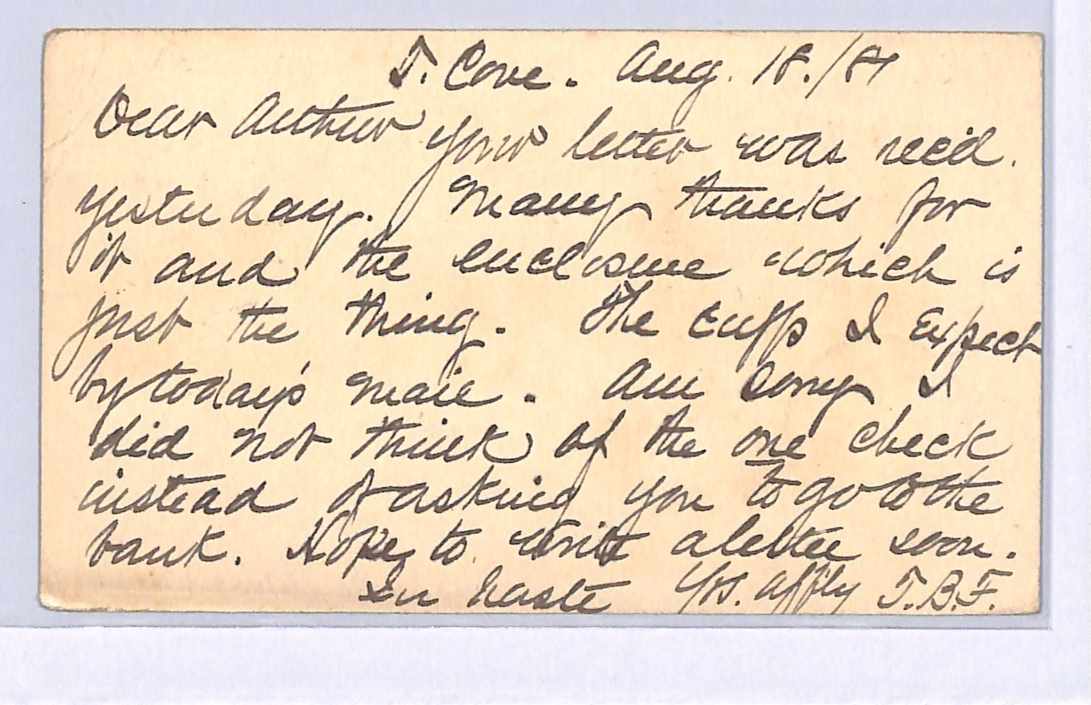 T. Cove. Aug. 18./81
Dear Arthur your letter was rec'd.
yesterday. Many thanks for
it and the enclosure which is
just the thing. The cuffs I expect
by today's mail. Am sorry I
did not think of the one check
instead of asking you to go to the
bank. Hope to write a letter soon.
In haste Yrs. affly T.B.F.